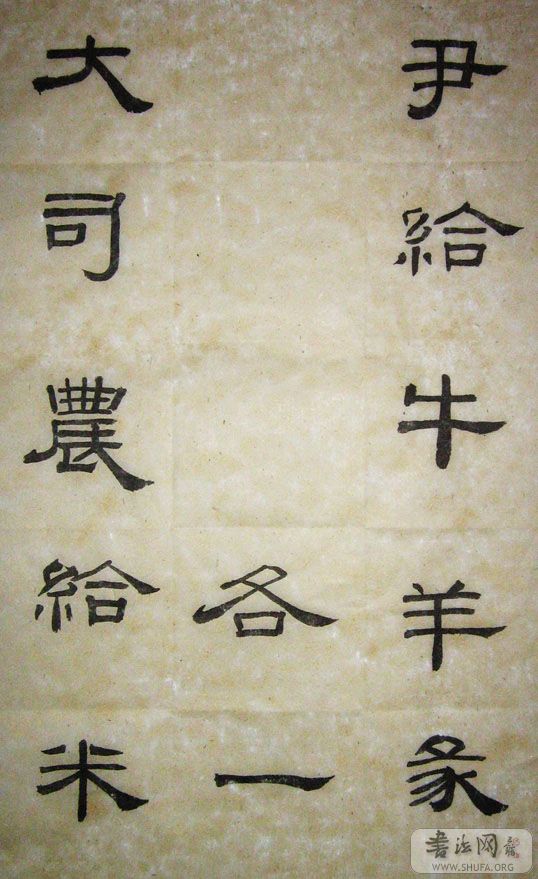 尹給牛羊豕
各一
大司農給米
書法网
WWW.SHUFA.ORG